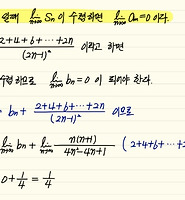 안에 lim Sₙ이 수렴하면 lim aₙ=0 이다.
n→∞ n→∞
2+4+6+⋯+2n / (2n-1)² 이라고 하면
수렴하므로 lim bₙ=0 이 되어야 한다.
n→∞
= bₙ + 2+4+6+⋯+2n / (2n-1)² 이므로
lim bₙ + lim n(n+1) / 4n²-4n+1 ( 2+4+6+⋯
n→∞ n→∞
0+1/4 = 1/4